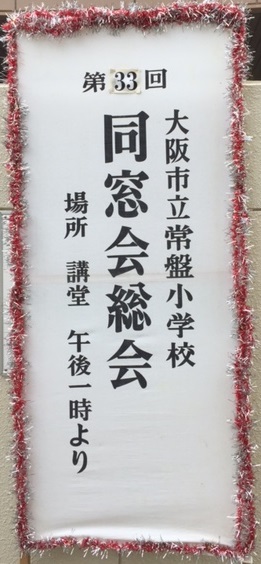 第33回
大阪市立常盤小学校
同窓会総会
場所 講堂 午後一時より